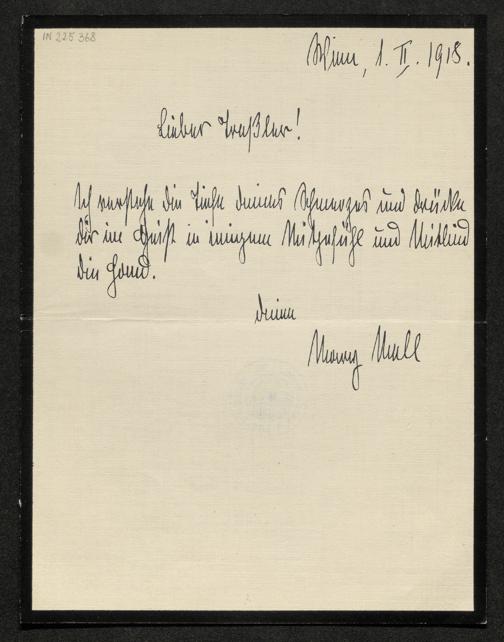 IN 225 368
Wien, 1. II. 1918.
Lieber Treßler!
Ich verstehe die Tiefe deines Schmerzes und drücke
dir im Geist in innigem Mitgefühl und Mitleid
die Hand.
deine
Mary Mell